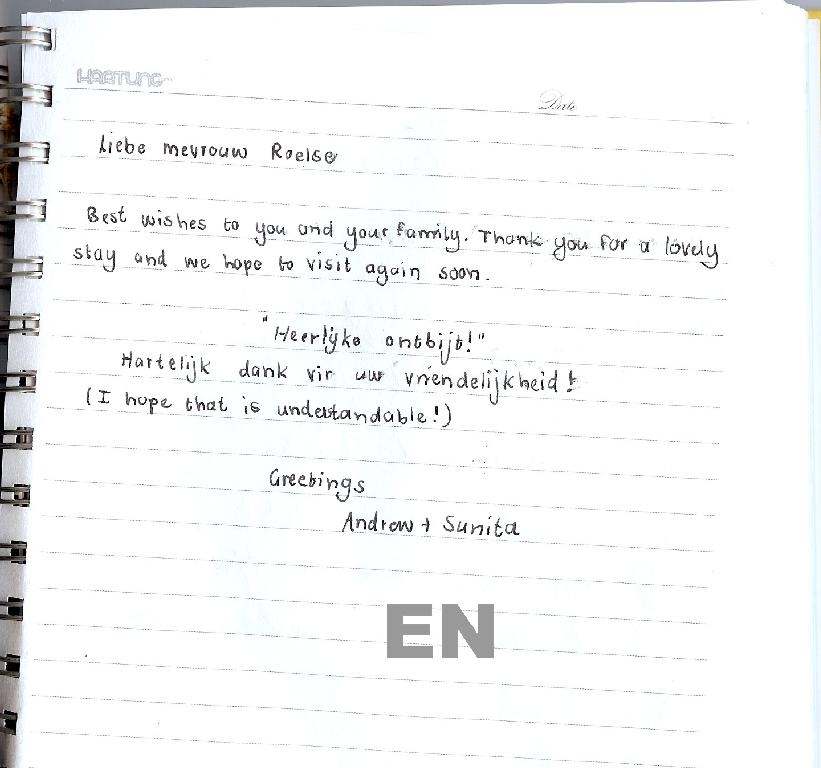 HARTUNG
Date
Liebe mevrouw Roelse
Best wishes to you and your family. Thank you for a lovely
stay and we hope to visit again soon.
"Heerlijke ontbijt!"
Hartelijk dank vir uw vriendelijkheid!
(I hope that is understandable!)
Greetings
Andrew + Sunita
EN